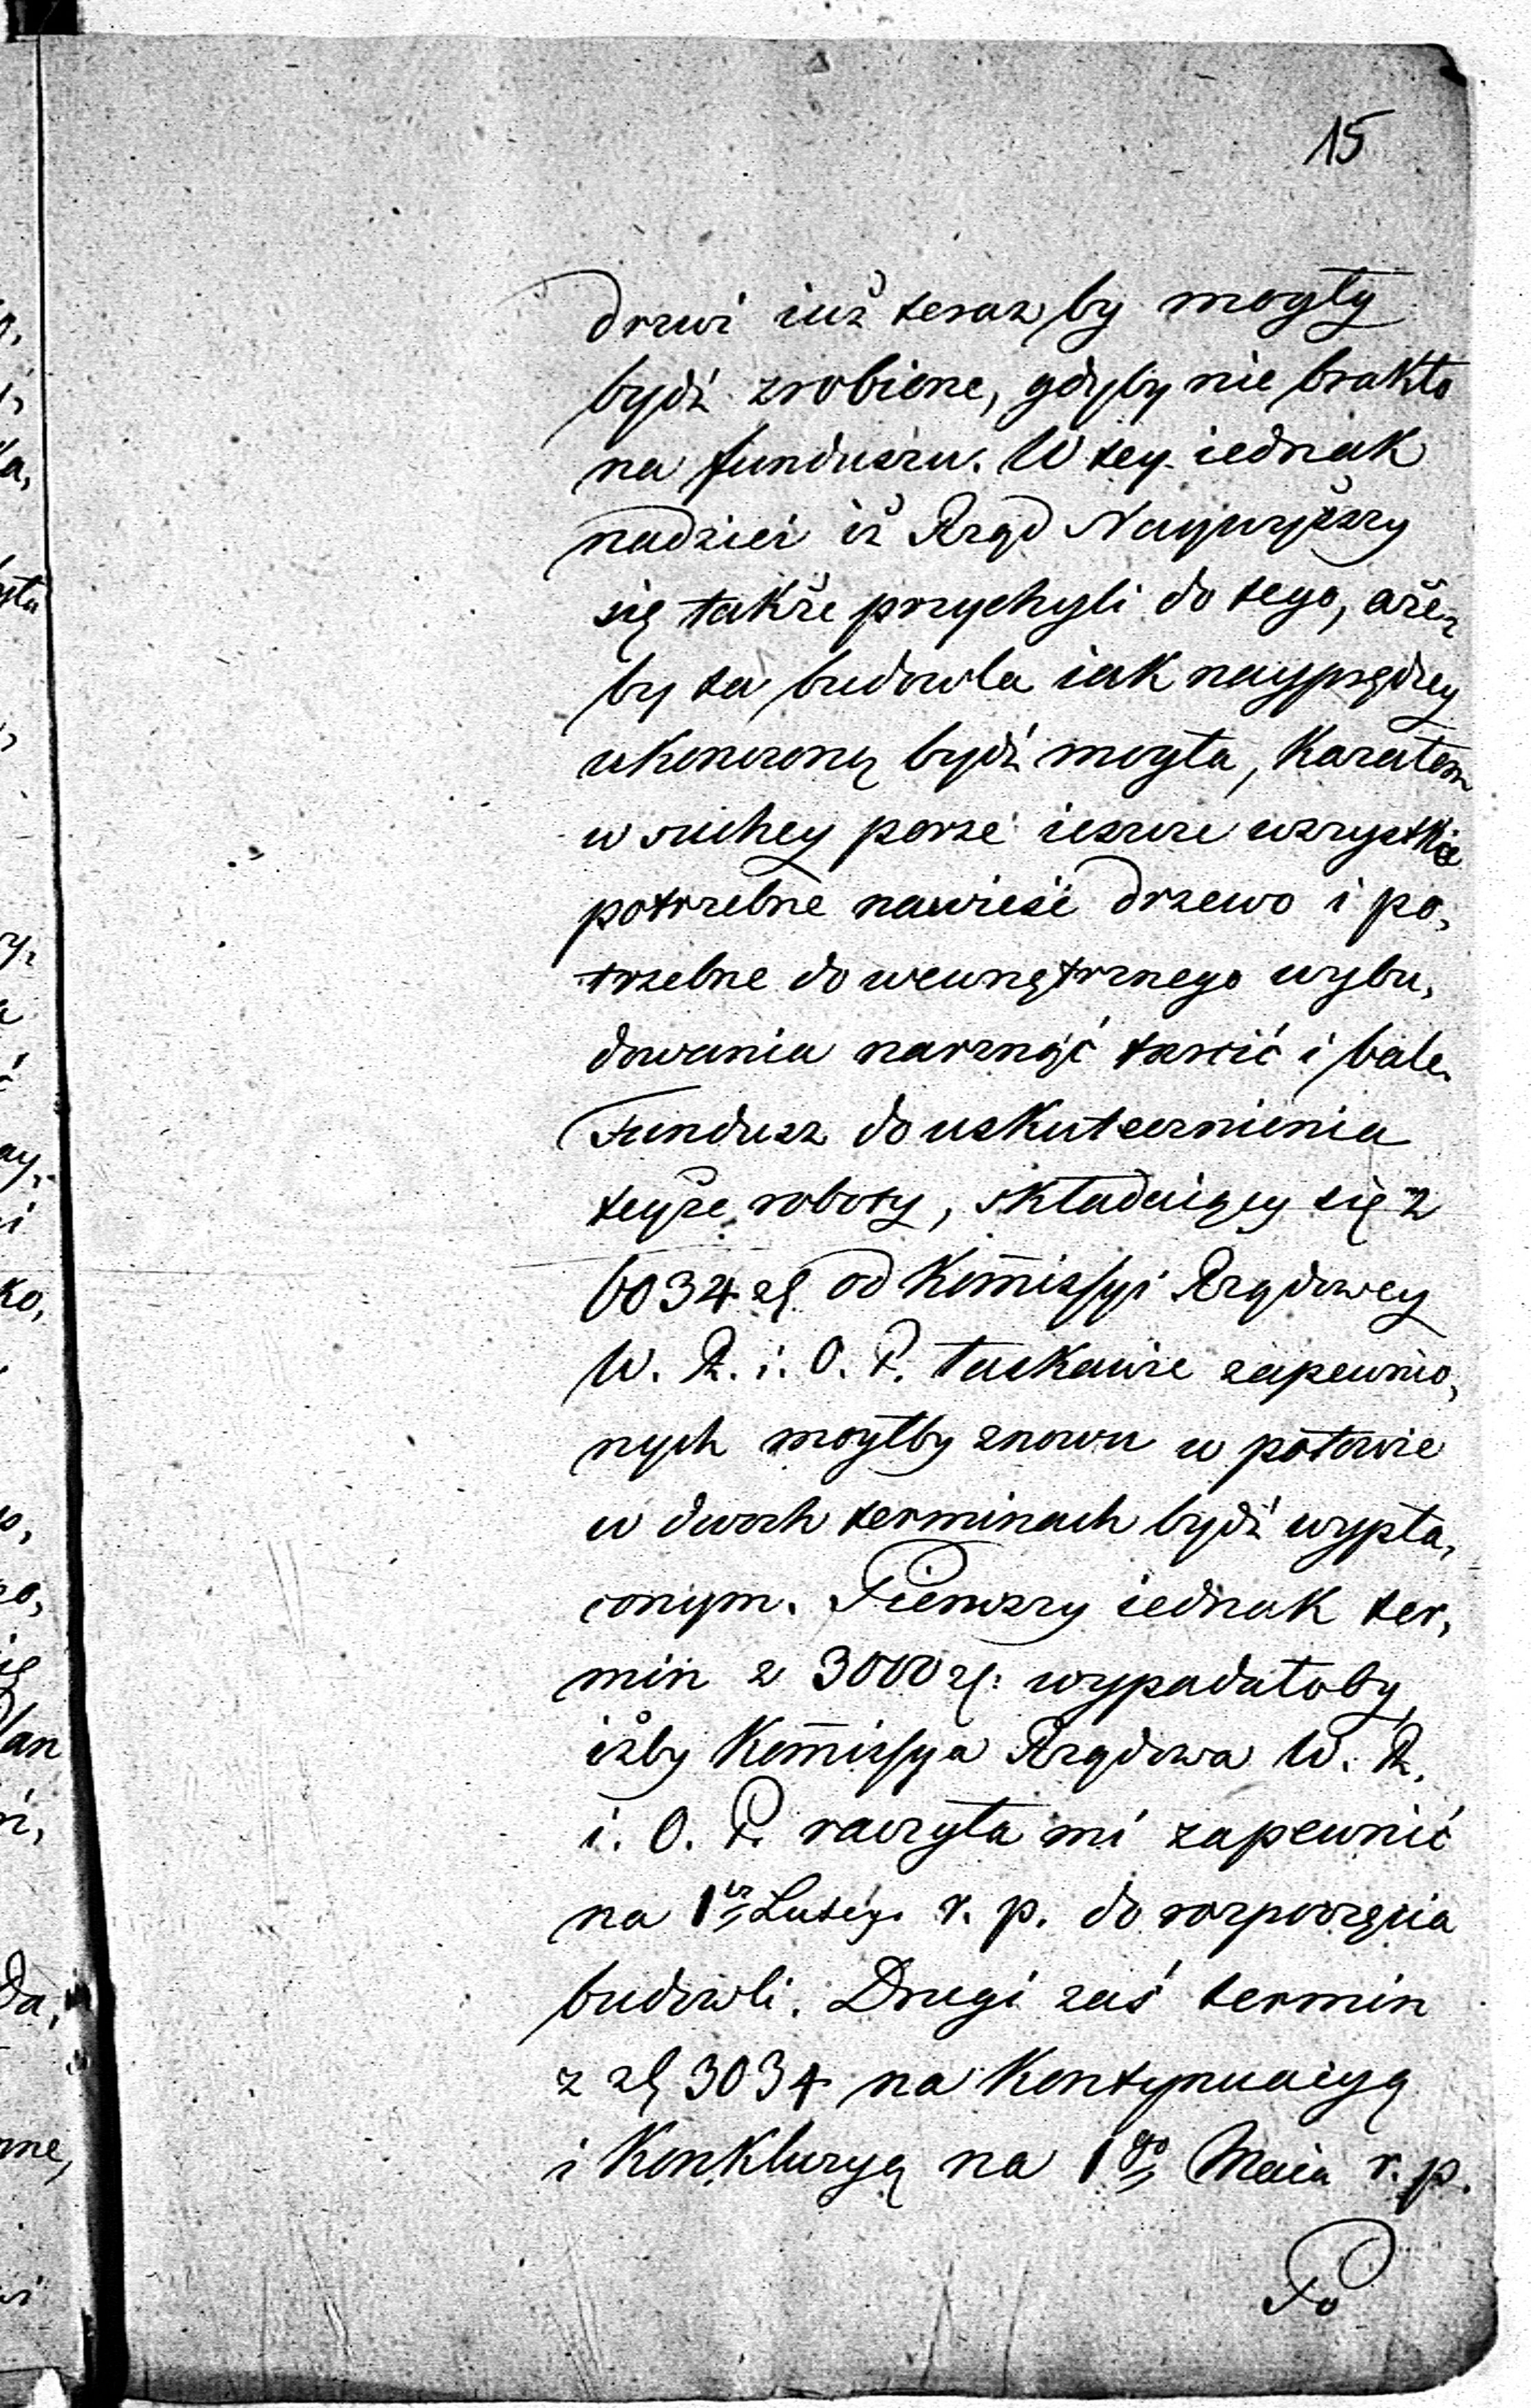 15
drzwi iuż teraz by mogły
bydź zrobione, gdyby nie brakło
na funduszu. W tey iednak
nadziei iż Rząd Naywyższy
się także przychyli do tego, aże,
by ta budowla iak nayprędzey
ukonczoną bydź mogła, kazałem
w suchey porze ieszcze wszystkie
potrzebne nawieść drzewo i po,
trzebne do wewnętrznego wybu,
dowania narznąć tarcić i bale.
Fundusz do uskutecznienia
teyże roboty, składaiący się z
6034 zł od Kom̄issyi Rządowey
W. R. i. O. P. łaskawie zapewnio,
nych mogłby znowu w połowie
w dwoch terminach bydź wypła,
conym. Pierwszy iednak ter,
min z 3000 zł: wypadałoby,
iżby Kom̄issya Rządowa W. R.
i. O. P. raczyła mi zapewnić
na 1 Lutego r. p. do rozpoczęcia
budowli. Drugi zaś termin
z zł 3034 na kontynuacyą
i konkluzyą na 1go Maia r. p.
Po